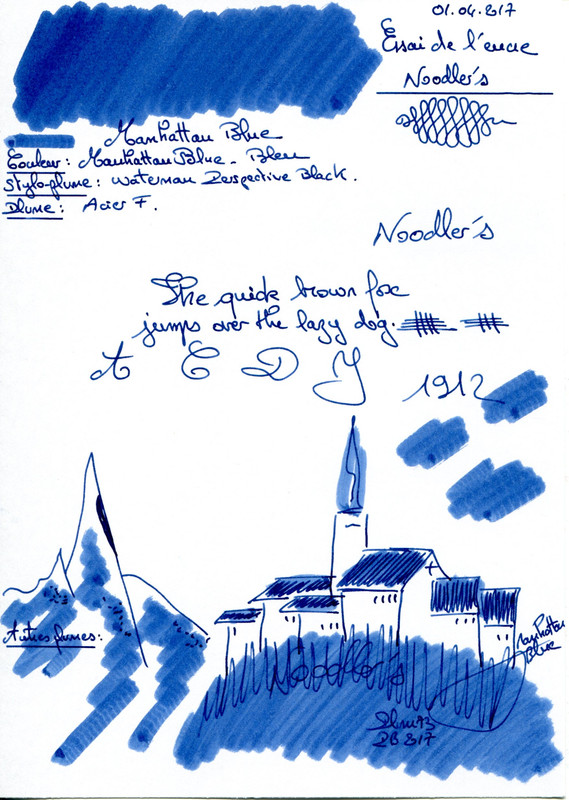 01.04.217
Essai de l'encre
Noodler's
Manhattan Blue
Couleur : Manhattan Blue - Bleu
Stylo-plume : Waterman Perspective Black.
Plume : Acier F.
Noodler's
The quick brown fox
jumps over the lazy dog.
A C E D Y
1912
Autres plumes :
Manhattan
Blue
Noodler's
217